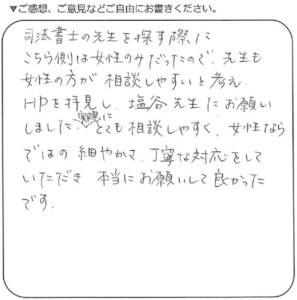 ▼ご感想、ご意見などご自由にお書きください。
司法書士の先生を探す際に
こちら側は女性のみだったので、先生も
女性の方が相談しやすいと考え
HPを拝見し、塩谷先生にお願い
しました。実際にとても相談しやすく、女性なら
ではの細やかさ、丁寧な対応をして
いただき本当にお願いして良かった
です。